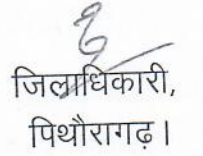 जिलाधिकारी,
पिथौरागढ़।